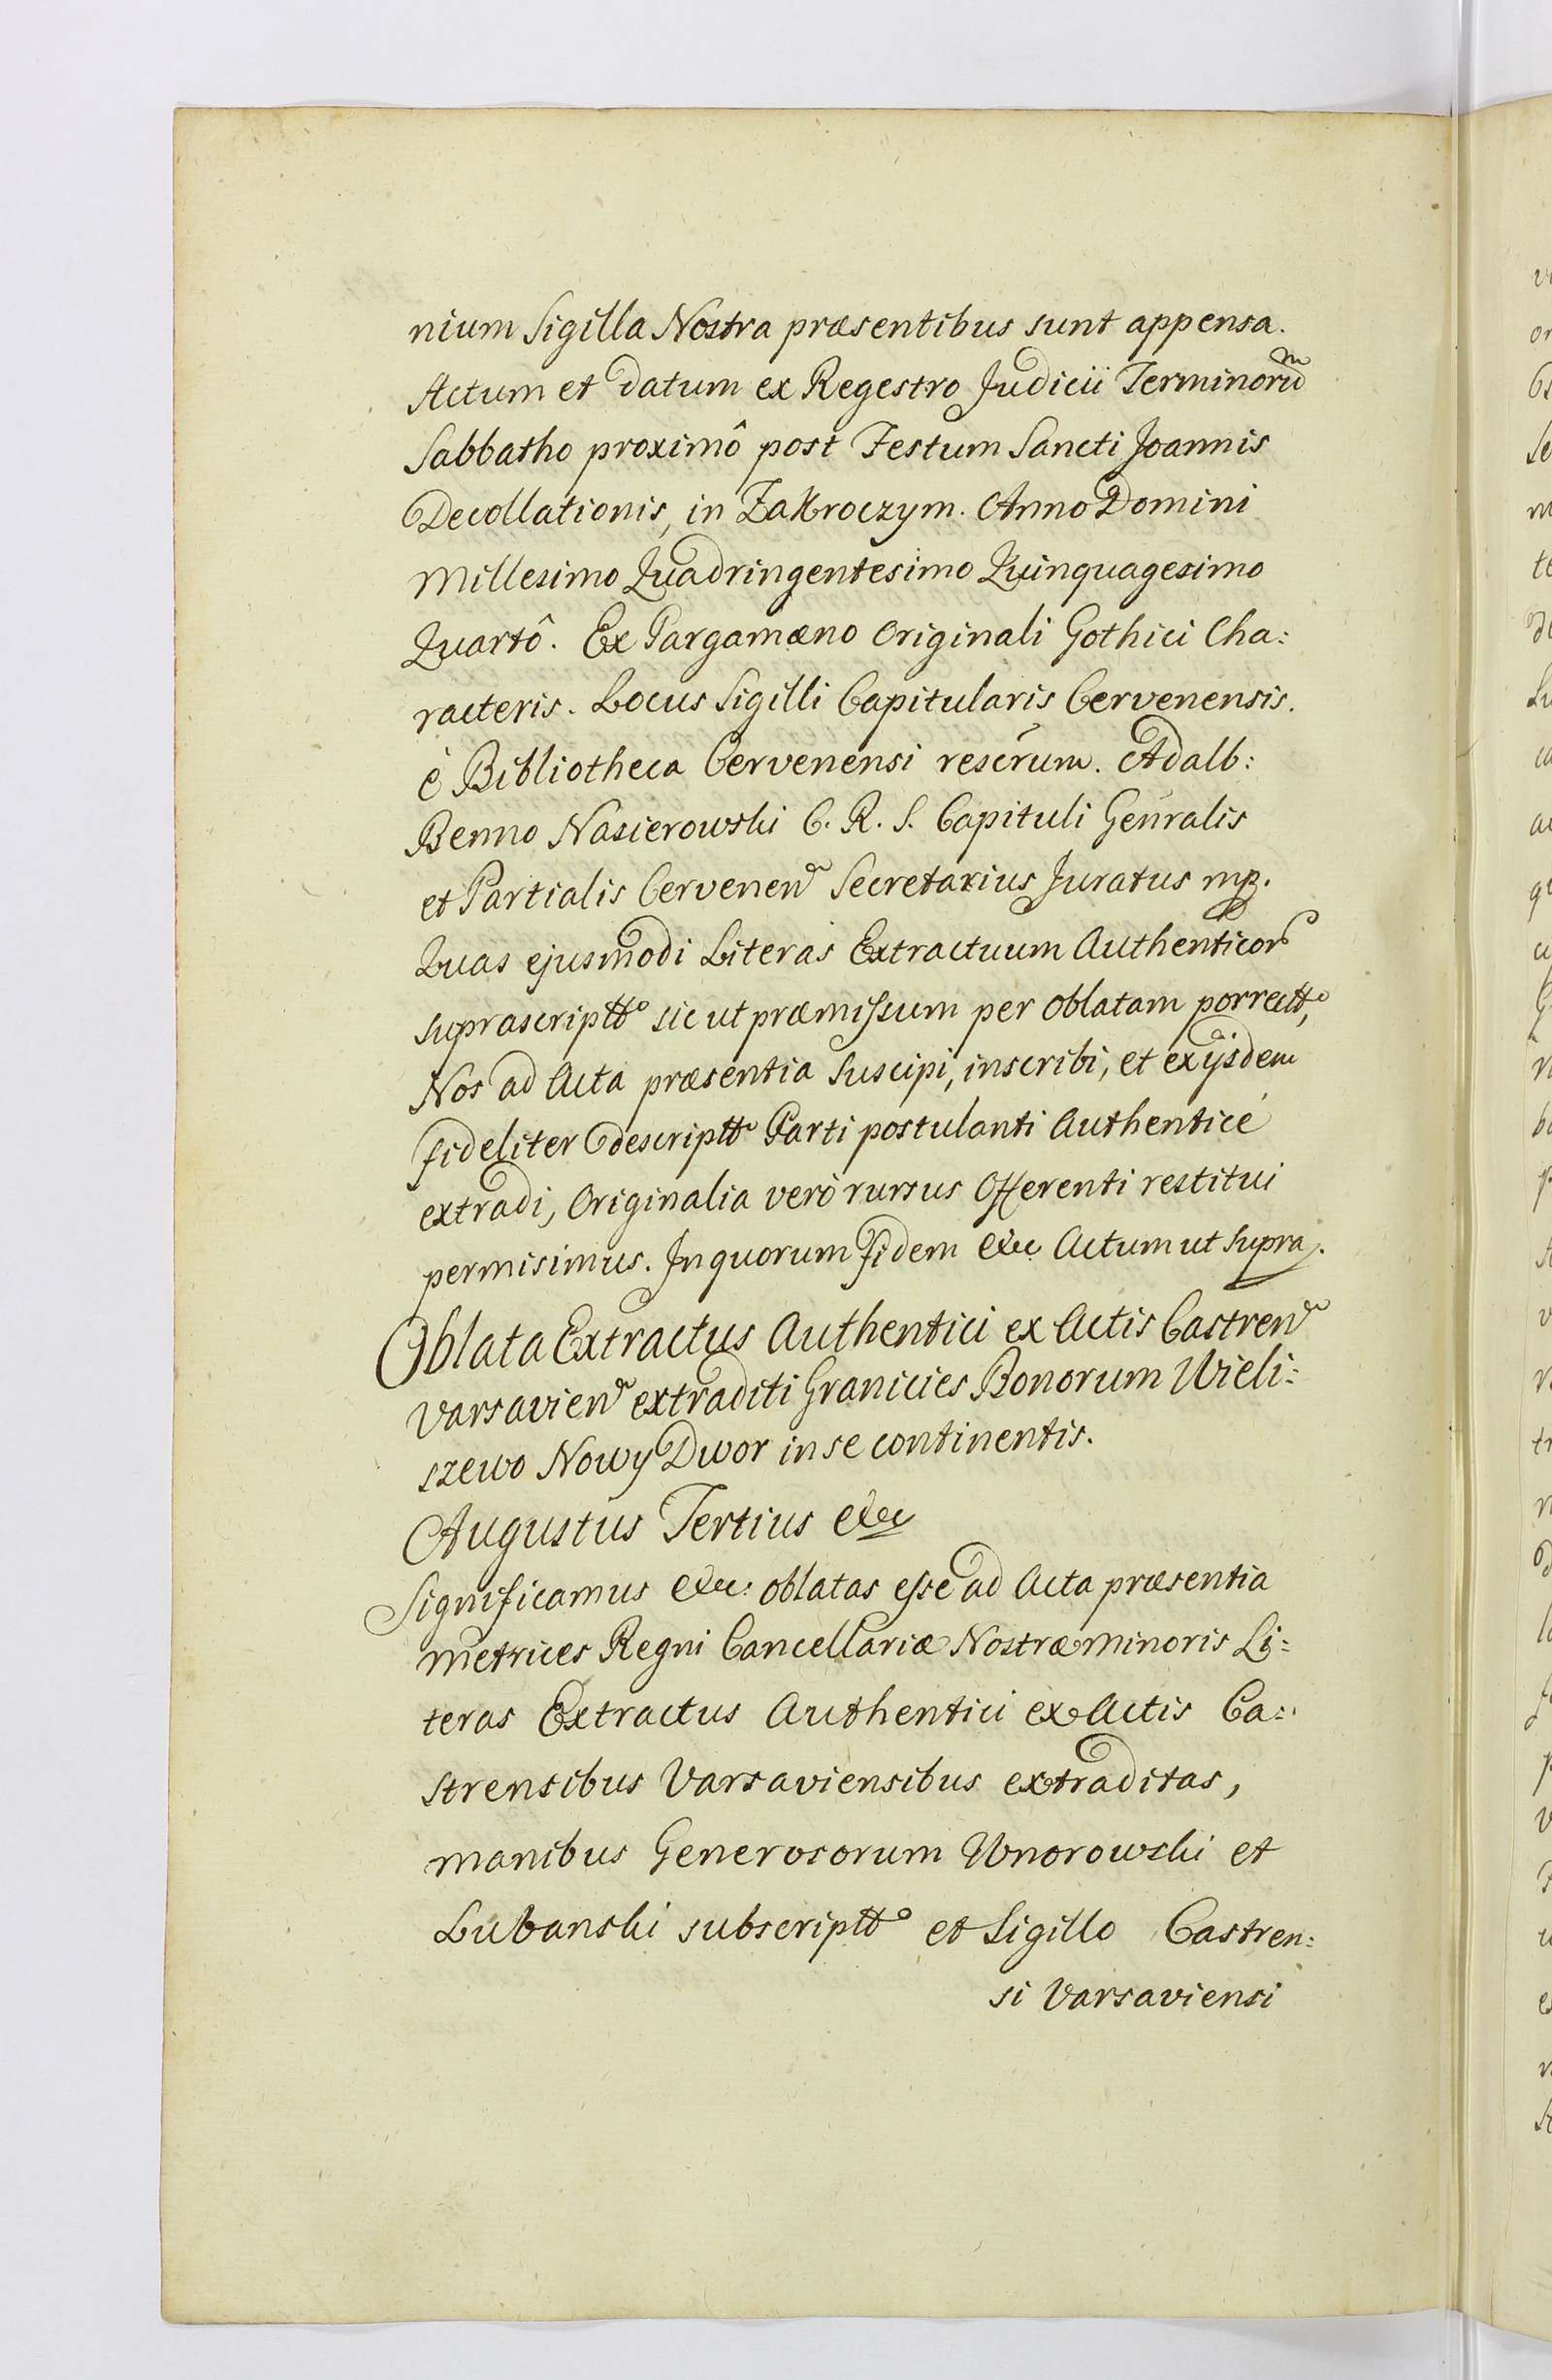 nium Sigilla Nostra præsentibus sunt appensa.
Actum et datum ex Regestro Judicii Terminorũ
Sabbatho proximô post Festum Sancti Joannis
Decollationis, in Zakroczym. Anno Domini
Millesimo Quadringentesimo Quinquagesimo
Quartô. Ex Pargamæno Originali Gothici Cha:
racteris. Locus Sigilli Capitularis Cervenensis.
è Bibliotheca Cervenensi Adalb:
Benno Nasierowski C. R. S. Capituli Gen̄ralis
et Partialis Cervenen̄ Secretarius Juratus mp.
Quas ejusmodi Literas Extractuum Authenticor̄
suprascriptt° sic ut præmissum per Oblatam porrectt°,
Nos ad Acta præsentia suscipi, inscribi, et ex ijsdem
fideliter descriptt° Parti postulanti Authenticé
extradi, Originalia verò rursus Offerenti restitui
permisimus. In quorum fidem &c Actum ut Supra.
Oblata Extractus Authentici ex Actis Castren̄
Varsavien̄ extraditi Granicies Bonorum Wieli:
szewo Nowy Dwor in se continentis.
Augustus Tertius &c
Significamus &c: oblatas esse ad Acta præsentia
Metrices Regni Cancellariæ Nostræ Minoris Li:
teras Extractus Authentici ex Actis Ca:
strensibus Varsaviensibus extraditas,
manibus Generosorum Unorowski et
Lubanski subscriptt° et Sigillo Castren:
si Varsaviensi